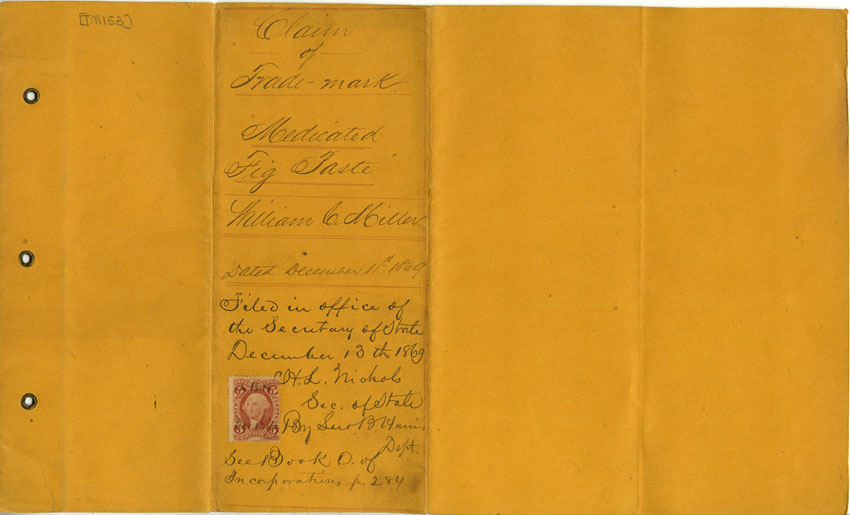 [TM153]
Claim
of
Trade-mark
"Medicated
Fig Paste"
William C. Miller
Dated December 11th 1869
Filed in office of
the Secretary of State
December 13th 1869
H. L. Nichols
Sec. of State
By Geo B. Harris
Dept.
See Book O. of
Incorporations p. 284